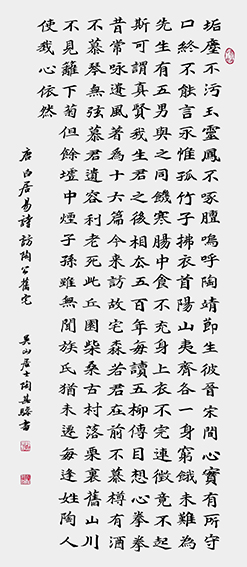 垢塵不污玉靈鳳不啄膻嗚呼陶靖節生彼晉宋間心實有所守
口終不能言永惟孤竹子拂衣首陽山夷齊各一身窮餓未難為
先生有五男與之同饑寒腸中食不充身上衣不完連徵竟不起
斯可謂真賢我生君之後相去五百年每讀五柳傳目想心拳拳
昔常詠遺風著為十六篇今來訪故宅森若君在前不慕樽有酒
不慕琴無弦慕君遺容利老死此丘園柴桑古村落栗裏舊山川
不見籬下菊但餘墟中煙子孫雖無聞族氏猶未遷每逢姓陶人
使我心依然
唐白居易詩訪陶公舊宅 吳山居士陶其書